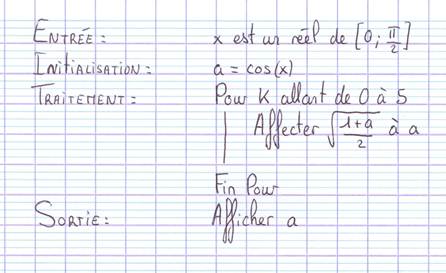 ENTRÉE : x est un réel de [0 ; π/2]
INITIALISATION : a = cos(x)
TRAITEMENT : Pour K allant de 0 à 5
Affecter √((1+a)/2) à a
Fin Pour
SORTIE : Afficher a